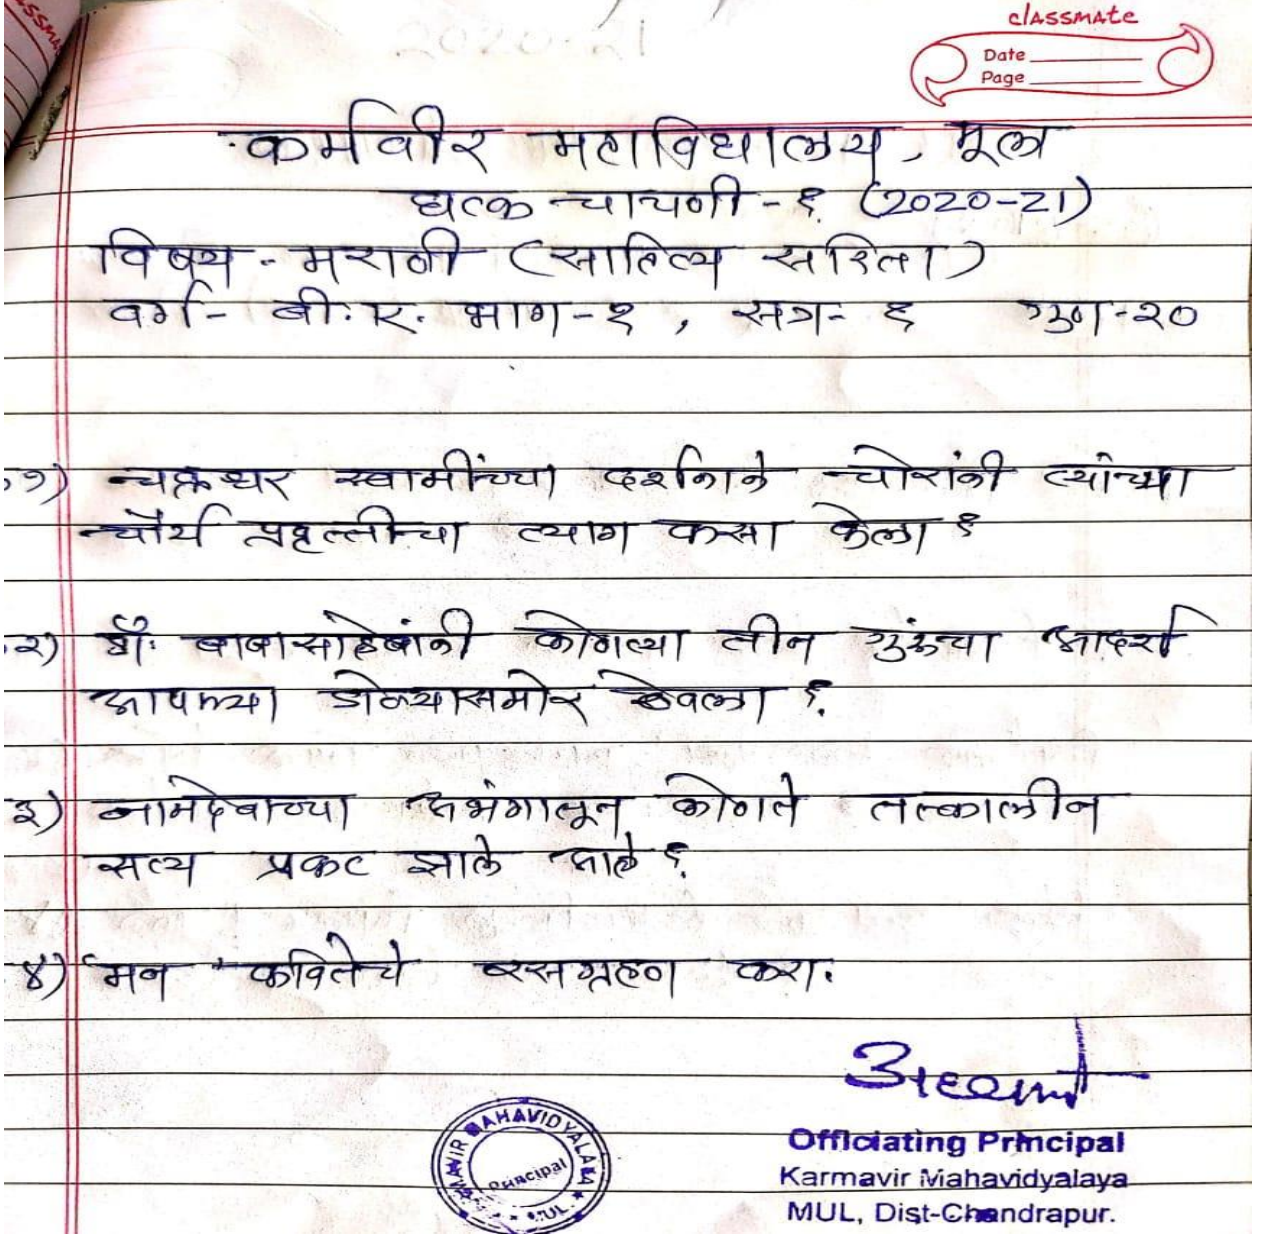 classmate
Date
Page
2020-21
कर्मवीर महाविद्यालय, मूल
घटक चाचणी - १ (2020-21)
विषय - मराठी (साहित्य सरिता)
वर्ग - बी. ए. भाग - १, सत्र - १ गुण - २०
१) चक्रधर स्वामींच्या दर्शनाने चोरांनी त्यांच्या
चौर्य प्रवृत्तीचा त्याग कसा केला ?
२) डॉ. बाबासाहेबांनी कोणत्या तीन गुरूंचा आदर्श
आपल्या डोळ्यासमोर ठेवला ?
३) नामदेवाच्या अभंगातून कोणते तत्कालीन
सत्य प्रकट झाले आहे ?
४) 'मन' कवितेचे रसग्रहण करा.
Officiating Principal
Karmavir Mahavidyalaya
MUL, Dist-Chandrapur.
MAHAVIDYALAYA
Principal
MUL